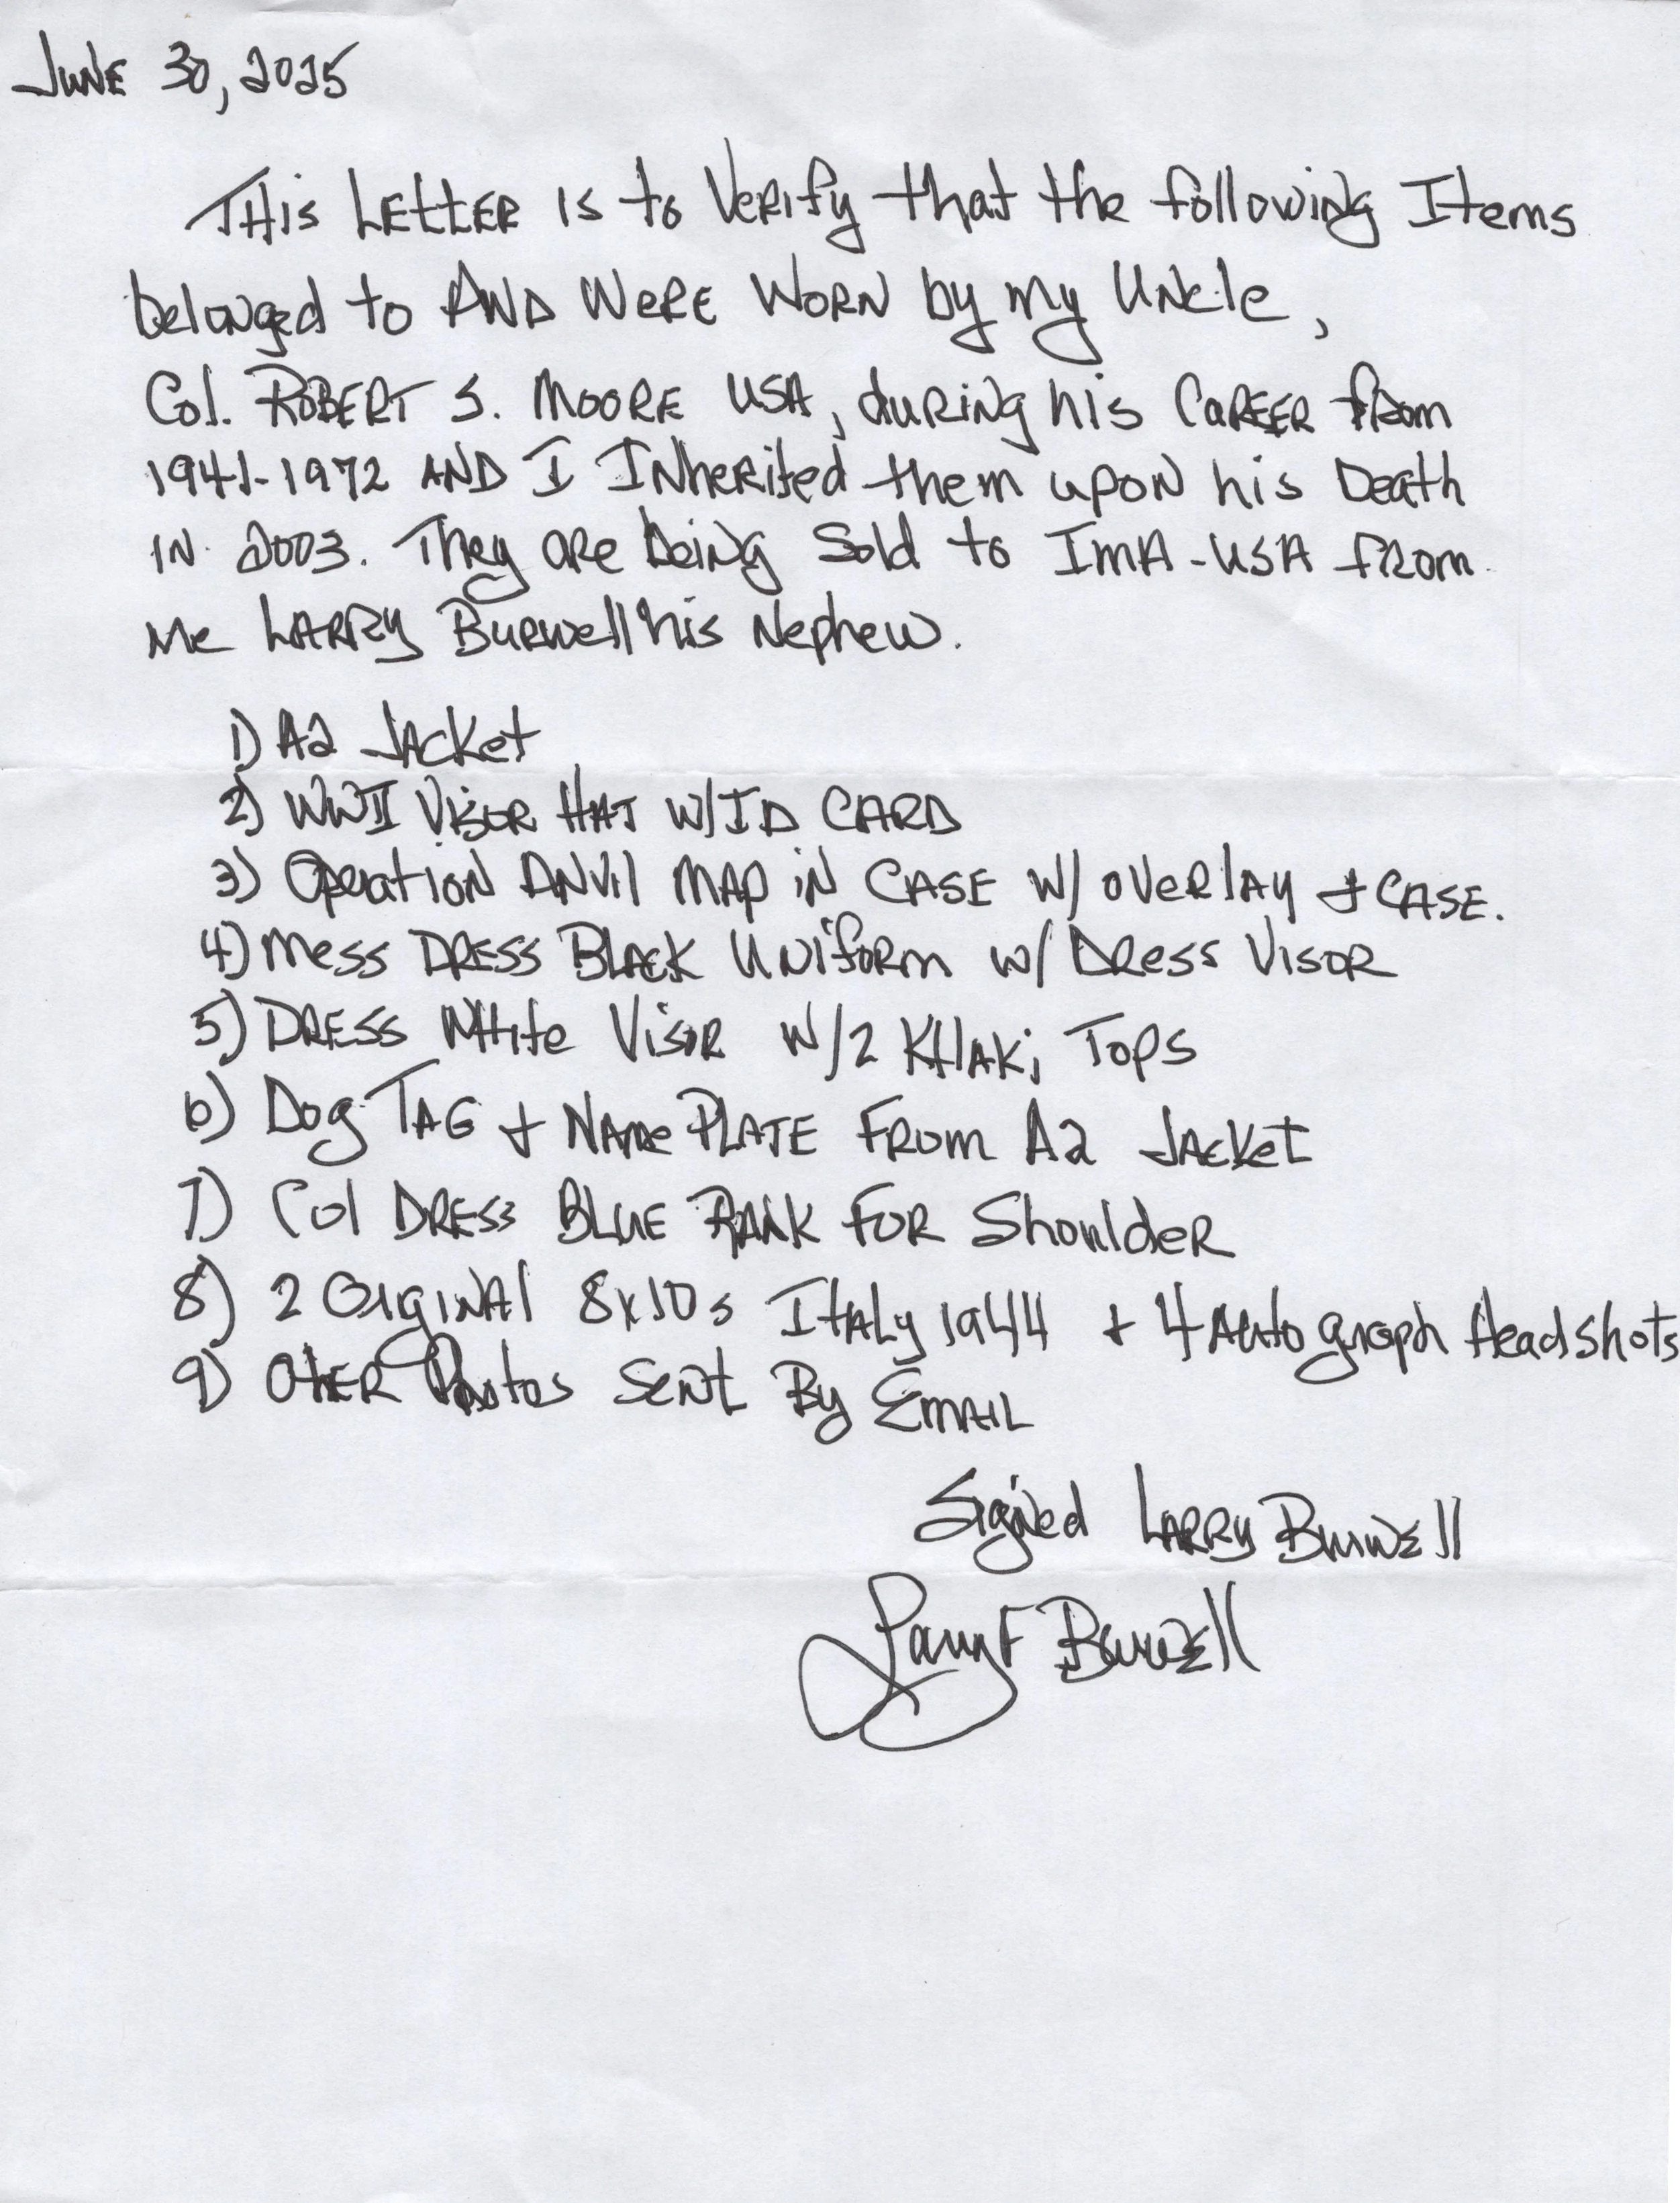 June 30, 2025
This Letter is to Verify that the following Items
belonged to AND WERE WORN by my Uncle,
Col. ROBERT S. MOORE USA, during his CAREER from
1941-1972 AND I INherited them upon his Death
IN 2003. They are being Sold to IMA-USA from
Me LARRY Burwell his Nephew.
1) A2 JACket
2) WWII VISOR HAT W/ID CARD
3) Operation ANVIL MAP IN CASE W/ OVERLAY + CASE.
4) Mess DRESS BLACK UNIFORM W/ DRESS VISOR
5) DRESS White Visor W/2 KHAKi Tops
6) Dog TAG + Name PLATE FROM A2 JACKET
7) Col DRESS BLUE RANK FOR Shoulder
8) 2 OrigINAl 8x10s ITALY 1944 + 4 Autograph Headshots
9) Other Photos Sent By EMAIL
Signed LARRY BurwEll
Larry F Burwell